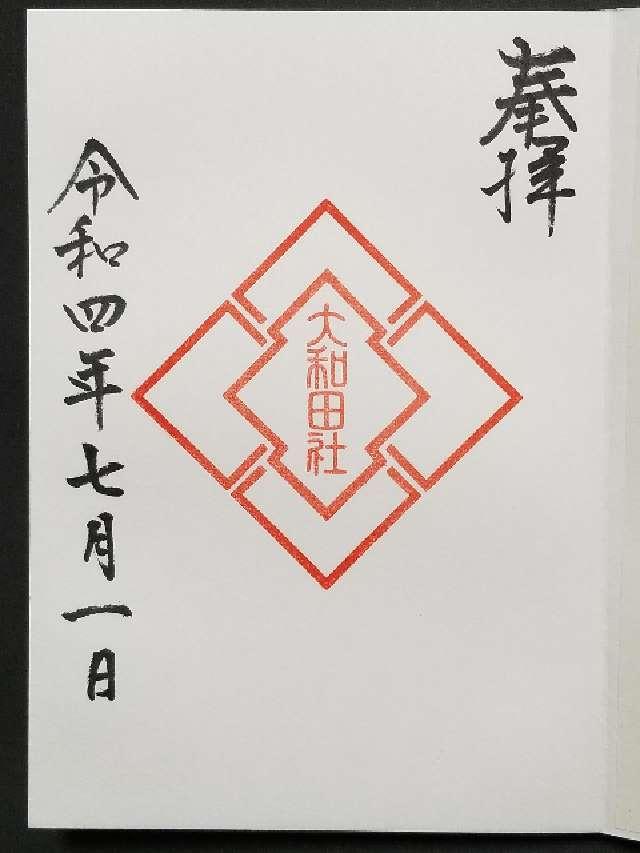 奉拝
大和田社
令和四年七月一日